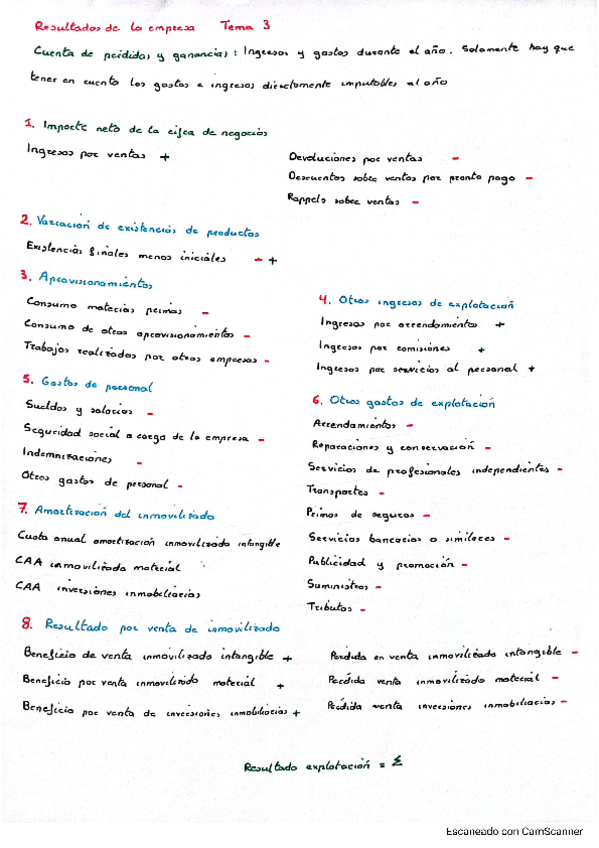 Resultados de la empresa Tema 3
Cuenta de perdidas y ganancias: Ingresos y gastos durante el año. Solamente hay que
tener en cuenta los gastos e ingresos directamente imputables al año
1. Importe neto de la cifra de negocios
Ingresos por ventas +
Devoluciones por ventas -
Descuentos sobre ventas por pronto pago -
Rappels sobre ventas -
2. Variación de existencias de productos
Existencias finales menos iniciales - +
3. Aprovisionamientos
Consumo materias primas -
Consumo de otros aprovisionamientos -
Trabajos realizados por otras empresas -
4. Otros ingresos de explotación
Ingresos por arrendamientos +
Ingresos por comisiones +
Ingresos por servicios al personal +
5. Gastos de personal
Sueldos y salarios -
Seguridad social a cargo de la empresa -
Indemnizaciones -
Otros gastos de personal -
6. Otros gastos de explotación
Arrendamientos -
Reparaciones y conservación -
Servicios de profesionales independientes -
Transportes -
Primas de seguros -
Servicios bancarios o similares -
Publicidad y promoción -
Suministros -
Tributos -
7. Amortización del inmovilizado
Cuota anual amortización inmovilizado intangible
CAA inmovilizado material
CAA inversiones inmobiliarias
8. Resultado por venta de inmovilizado
Beneficio de venta inmovilizado intangible +
Beneficio por venta inmovilizado material +
Beneficio por venta de inversiones inmobiliarias +
Perdida en venta inmovilizado intangible -
Perdida venta inmovilizado material -
Perdida venta inversiones inmobiliarias -
Resultado explotación = Σ
Escaneado con CamScanner